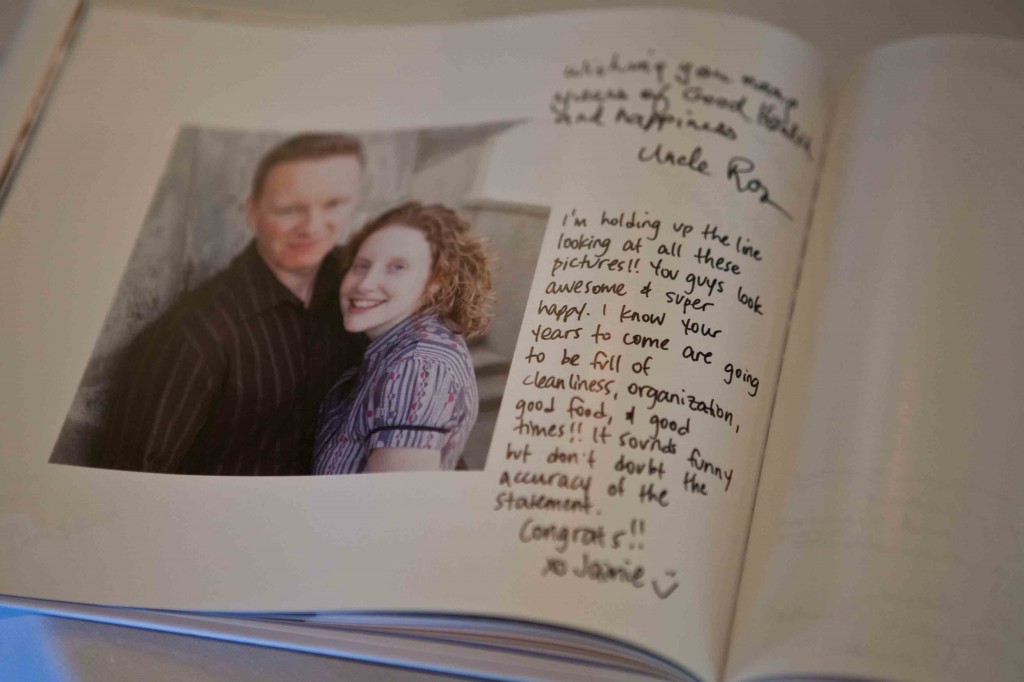 wishing you many
years of Good Health
and happiness
Uncle Roz
I'm holding up the line
looking at all these
pictures!! You guys look
awesome & super
happy. I know your
years to come are going
to be full of
cleanliness, organization,
good food, & good
times!! It sounds funny
but don't doubt the
accuracy of the
statement.
Congrats!!
xo Jaimie